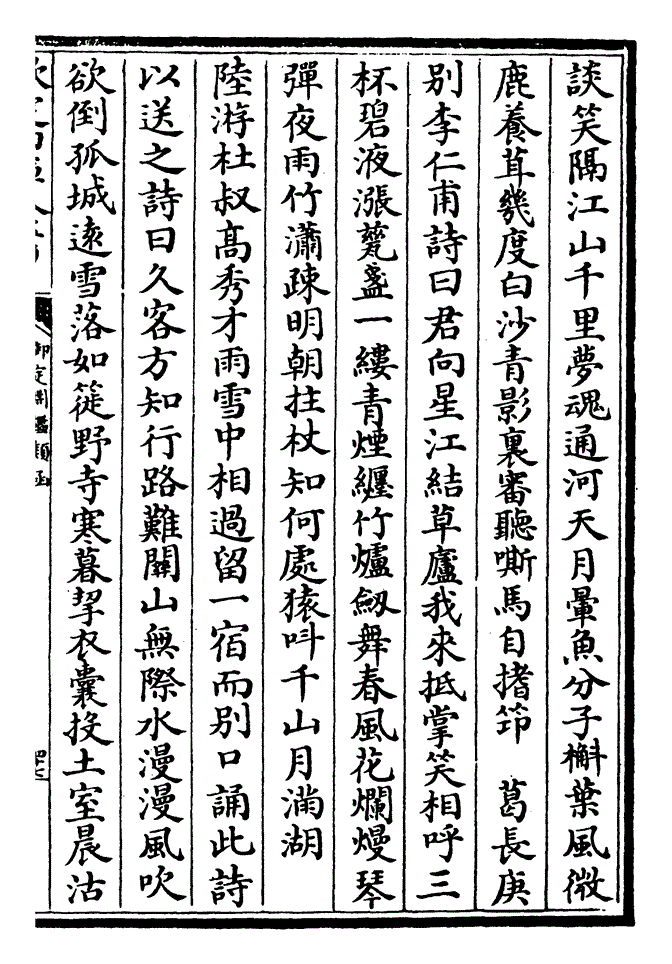 談笑隔江山千里夢魂通河天月暈魚分子槲葉風微
鹿養茸幾度白沙青影裏審聽嘶馬自搘筇　葛長庚
別李仁甫詩曰君向星江結草廬我來抵掌笑相呼三
杯碧液漲甆盞一縷青煙纒竹爐劔舞春風花爛熳琴
彈夜雨竹瀟疎明朝拄杖知何處猿呌千山月滿湖
陸游杜叔髙秀才雨雪中相過留一宿而别口誦此詩
以送之詩曰久客方知行路難關山無際水漫漫風吹
欲倒孤城逺雪落如簁野寺寒暮挈衣囊投土室晨沽
御定淵鑑類函
四七